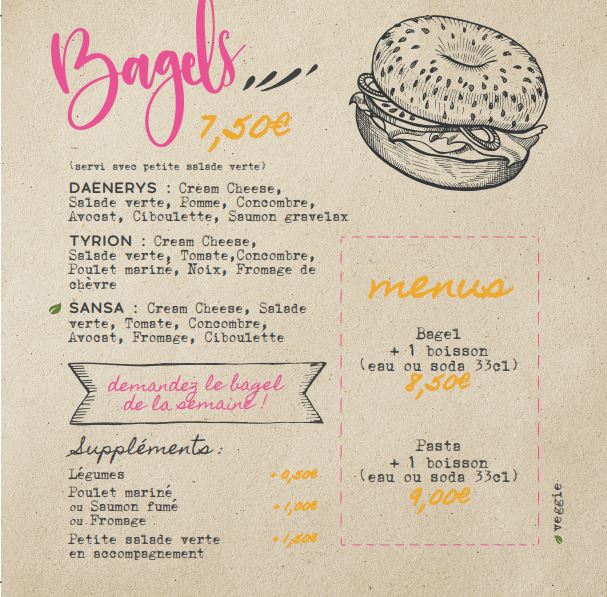 Bagels
7,50€
(servi avec petite salade verte)
DAENERYS : Cream Cheese,
Salade verte, Pomme, Concombre,
Avocat, Ciboulette, Saumon gravelax
TYRION : Cream Cheese,
Salade verte, Tomate,Concombre,
Poulet mariné, Noix, Fromage de
chèvre
SANSA : Cream Cheese, Salade
verte, Tomate, Concombre,
Avocat, Fromage, Ciboulette
demandez le bagel
de la semaine !
Suppléments :
Légumes + 0,50€
Poulet mariné
ou Saumon fumé + 1,00€
ou Fromage
Petite salade verte + 1,50€
en accompagnement
menus
Bagel
+ 1 boisson
(eau ou soda 33cl)
8,50€
Pasta
+ 1 boisson
(eau ou soda 33cl)
9,00€
veggie